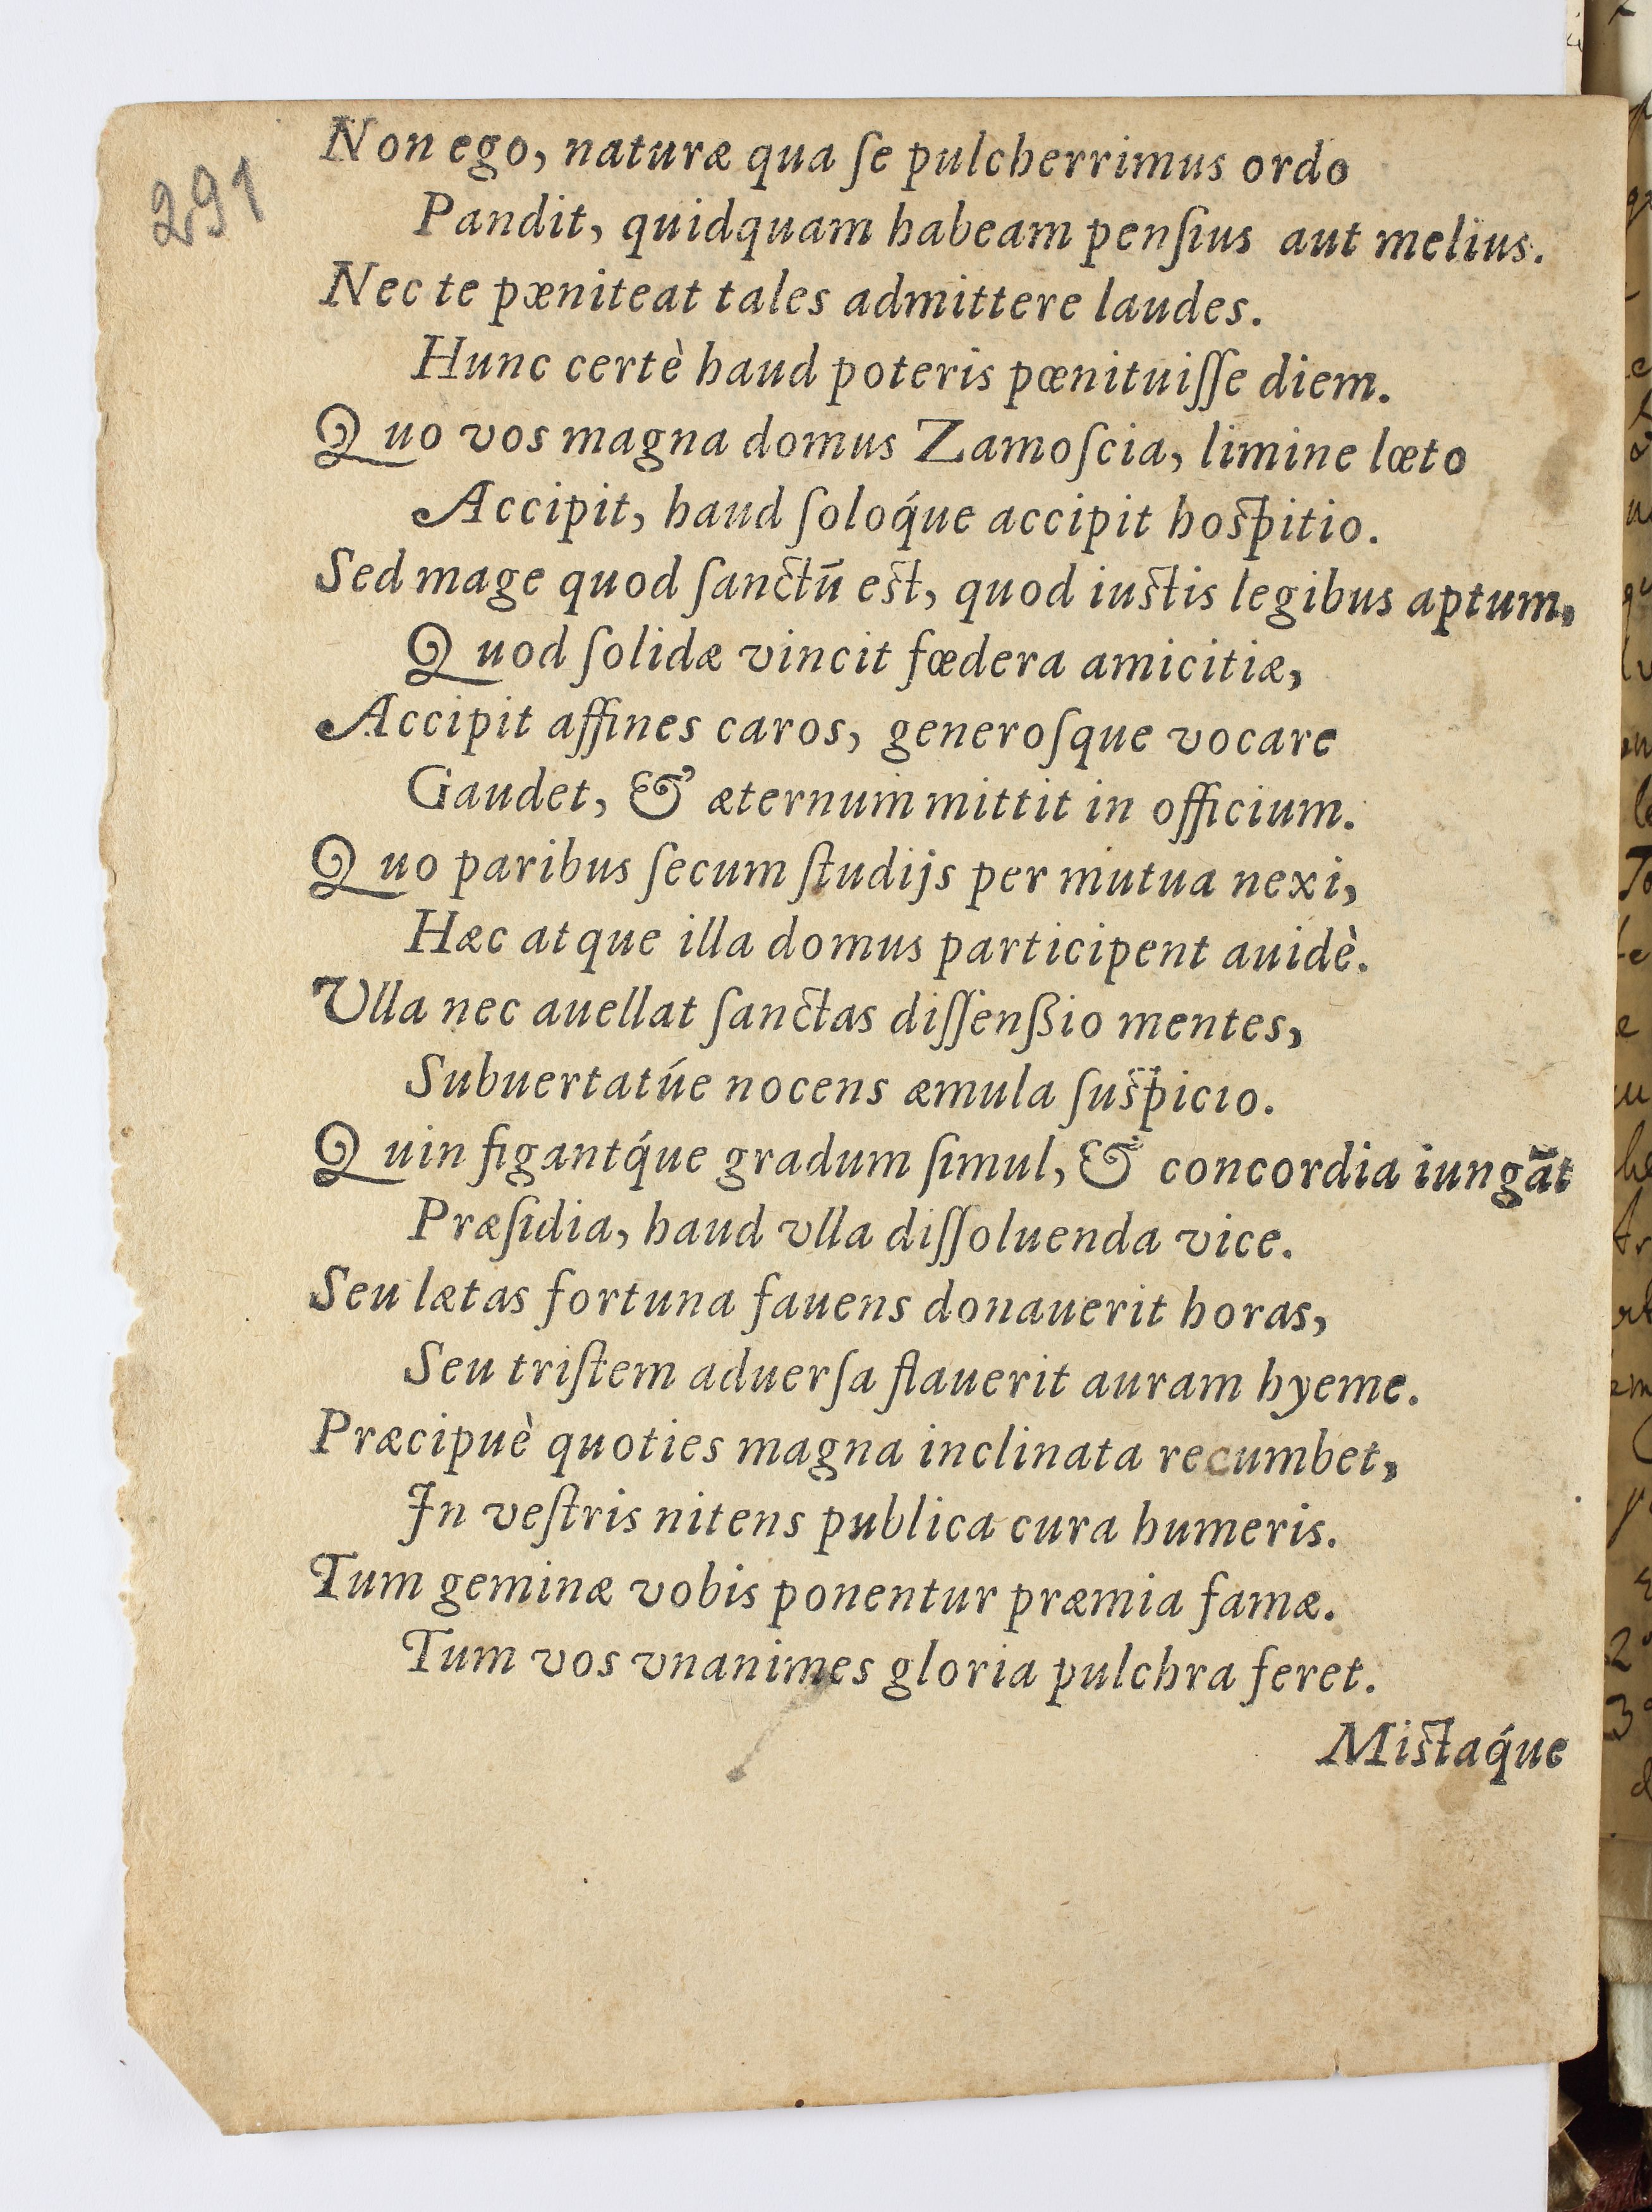 291
Non ego, naturæ qua ſe pulcherrimus ordo
Pandit, quidquam habeam penſius aut melius.
Nec te pæniteat tales admittere laudes.
Hunc certè haud poteris pœnituiſſe diem.
Quo vos magna domus Zamoſcia, limine lœto
Accipit, haud ſoloq́ue accipit hoſpitio.
Sed mage quod ſanctū eſt, quod iuſtis legibus aptum,
Quod ſolidæ vincit fœdera amicitiæ,
Accipit affines caros, generoſque vocare
Gaudet, & æternum mittit in officium.
Quo paribus ſecum ſtudijs per mutua nexi,
Hæc atque illa domus participent auidè.
Vlla nec auellat ſanctas diſſenſsio mentes,
Subuertatúe nocens æmula ſuſpicio.
Quin figantq́ue gradum ſimul, & concordia iungāt
Præſidia, haud vlla diſſoluenda vice.
Seu lætas fortuna fauens donauerit horas,
Seu triſtem aduerſa flauerit auram hyeme.
Præcipuè quoties magna inclinata recumbet,
In veſtris nitens publica cura humeris.
Tum geminæ vobis ponentur præmia famæ.
Tum vos vnanimes gloria pulchra feret.
Miſtaq́ue